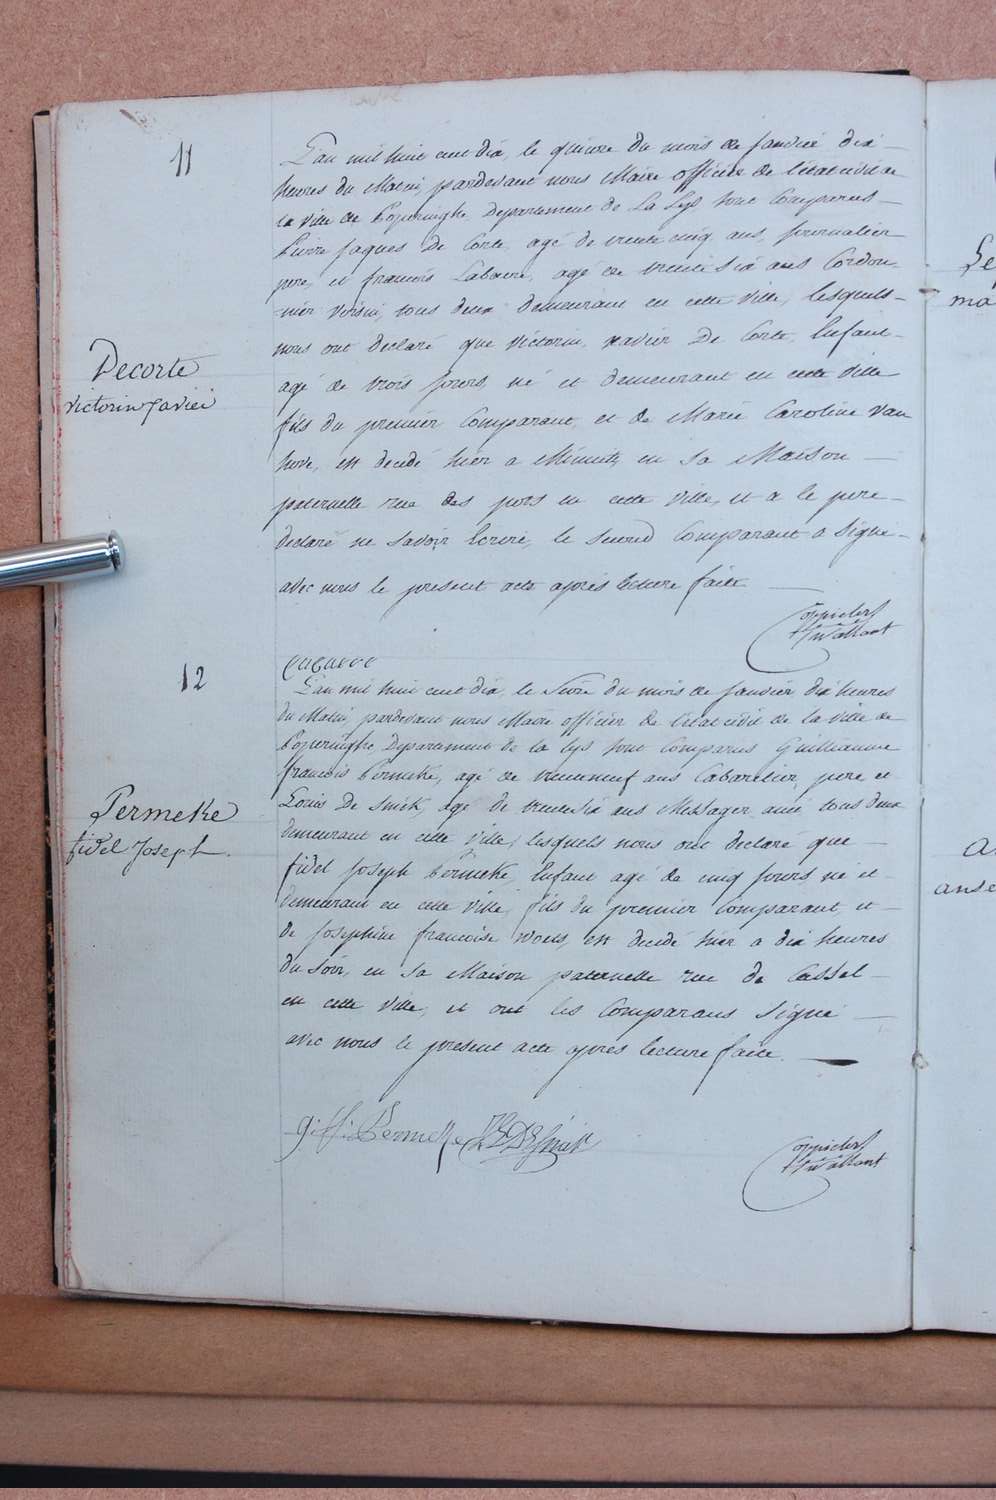 11
L'an mil huit cent dix, le quinze du mois de Janvier dix
heures du Matin, pardevant nous Maire officier de l'état civil de
la ville de Poperinghe Departement de La Lys sont Comparus
Pierre Jaques De Corte, agé de trente cinq ans, journalier
pere, et francois Cabaere, agé de trente six ans Cordon
nier voisin, tous deux demeurant en cette ville, lesquels
nous ont declaré que Victorin xavier De Corte, Enfant
Decorte
victorin Xavier
agé de trois jours, né et demeurant en cette ville
fils du premier Comparant, et de Marie Caroline van
hove, est decedé hier a Minuit, en sa Maison
paternelle rue des pots en cette ville, et a le pere
declaré ne savoir Ecrire, le second Comparant a signé
avec nous le present acte après lecture faite
12
L'an mil huit cent dix, le Seize du mois de Janvier, dix heures
du Matin, pardevant nous Maire officier de l'état civil de la ville de
Poperinghe Departement de la Lys sont Comparus Guilliaume
francois Permeke, agé de trenteneuf ans Cabaretier, pere et
Louis De Smidt, agé de trente six ans Messager ami, tous deux
Permeke
fidel Joseph
demeurant en cette ville, lesquels nous ont declaré que
fidel Joseph Permeke, Enfant agé de cinq jours né et
demeurant en cette ville, fils du premier Comparant, et
de Josephine francoise Woets, est decedé hier a dix heures
du Soir, en sa Maison paternelle rue de Cassel
en cette ville, et ont les Comparans signé
avec nous le present acte après lecture faite.
g: f: Permeke L De Smidt